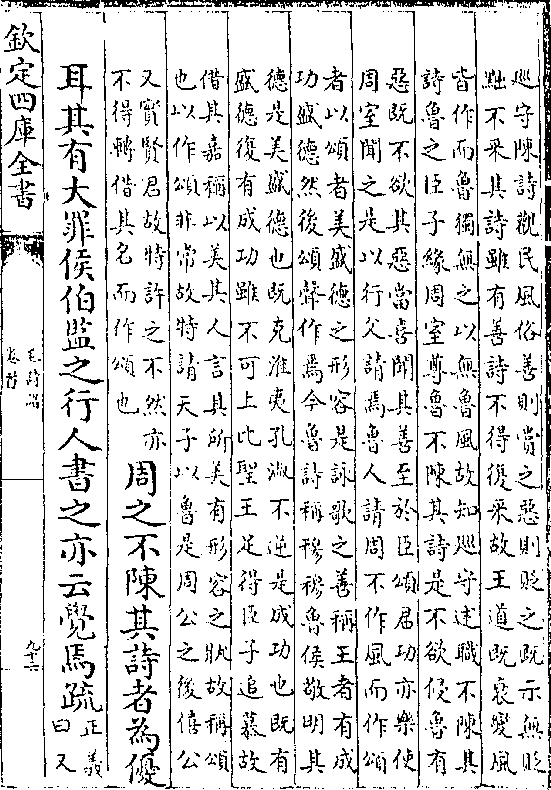 巡守陳詩觀民風俗善則賞之惡則貶之既示無貶
黜不采其詩雖有善詩不得復采故王道既衰變風
皆作而魯獨無之以無魯風故知巡守述職不陳其
詩魯之臣子緣周室尊魯不陳其詩是不欲使魯有
惡既不欲其惡當喜聞其善至於臣頌君功亦樂使
周室聞之是以行父請焉魯人請周不作風而作頌
者以頌者美盛德之形容是詠歌之善稱王者有成
功盛德然後頌聲作焉今魯詩稱穆穆魯侯敬明其
德是美盛德也既克淮夷孔淑不逆是成功也既有
盛德復有成功雖不可上比聖王足得臣子追慕故
借其嘉稱以美其人言其所美有形容之狀故稱頌
也以作頌非常故特請天子以魯是周公之後僖公
又實賢君故特許之不然亦
不得轉借其名而作頌也
周之不陳其詩者為優
耳其有大罪侯伯監之行人書之亦云覺焉疏
正義
曰又
欽定四庫全書
毛詩譜
卷首